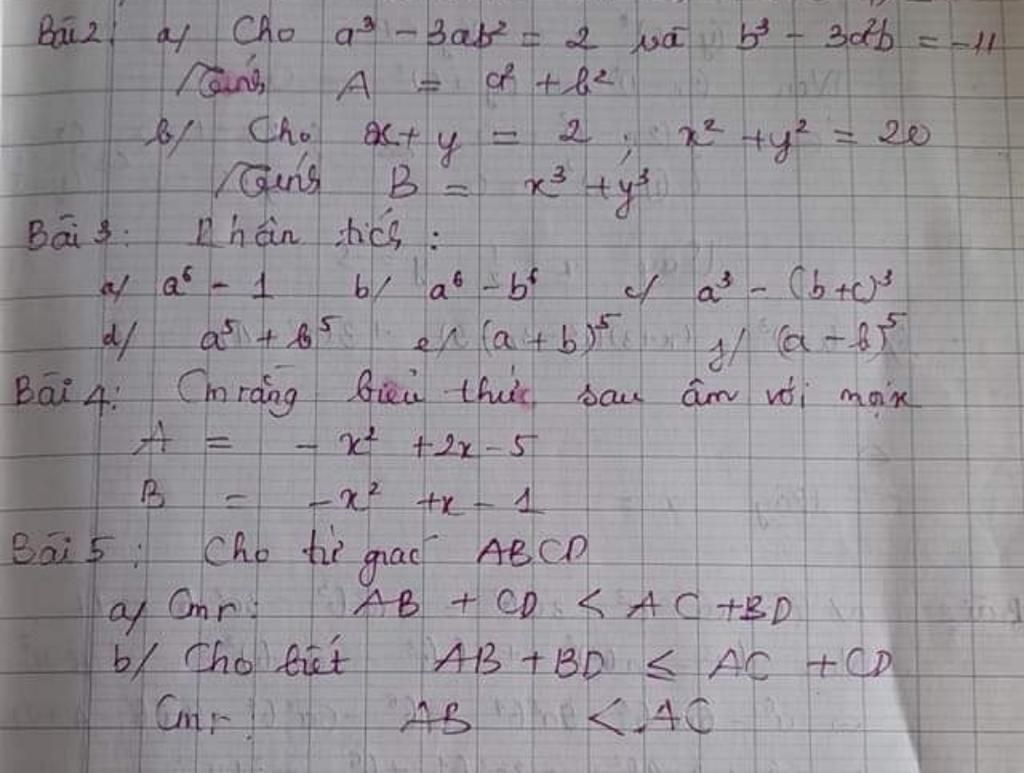 Bài 2: a/ Cho a³ - 3ab² = 2 và b³ - 3a²b = -11
Tính A = a² + b²
b/ Cho x + y = 2 ; x² + y² = 20
Tính B = x³ + y³
Bài 3: Phân tích :
a/ a⁶ - 1 b/ a⁶ - b⁶ c/ a³ - (b+c)³
d/ a⁵ + b⁵ e/ (a + b)⁵ f/ (a - b)⁵
Bài 4: Cm rằng biểu thức sau âm với mọi x
A = - x² + 2x - 5
B = - x² + x - 1
Bài 5 : Cho tứ giác ABCD
a/ Cmr: AB + CD < AC + BD
b/ Cho biết AB + BD ≤ AC + CD
Cmr: AB < AC